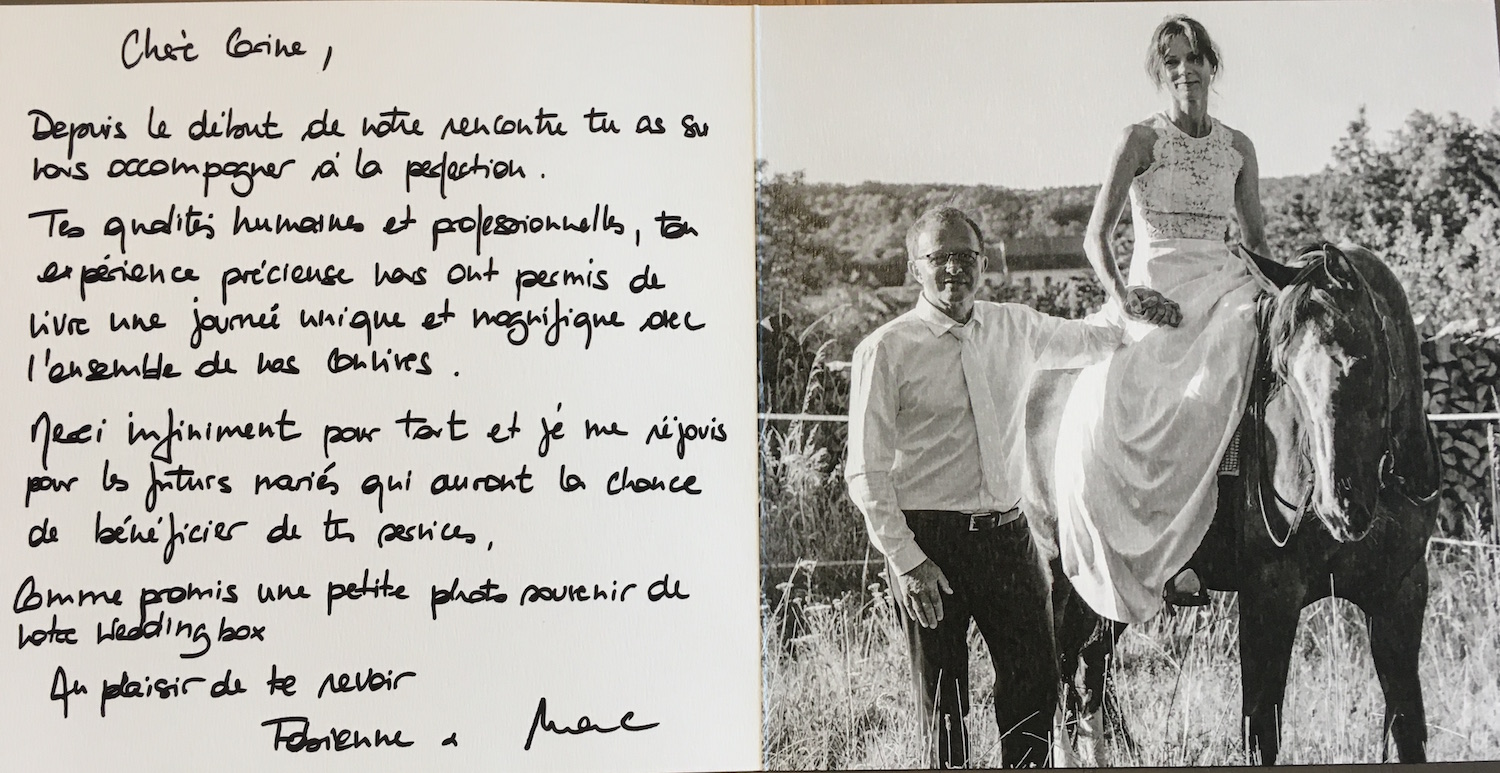 Chère Corine,
Depuis le début de notre rencontre tu as su
nous accompagner à la perfection.
Tes qualités humaines et professionnelles, ton
expérience précieuse nous ont permis de
vivre une journée unique et magnifique avec
l'ensemble de nos convives.
Merci infiniment pour tout et je me réjouis
pour les futurs mariés qui auront la chance
de bénéficier de tes services,
Comme promis une petite photo souvenir de
notre Wedding box
Au plaisir de te revoir
Fabienne & Marc